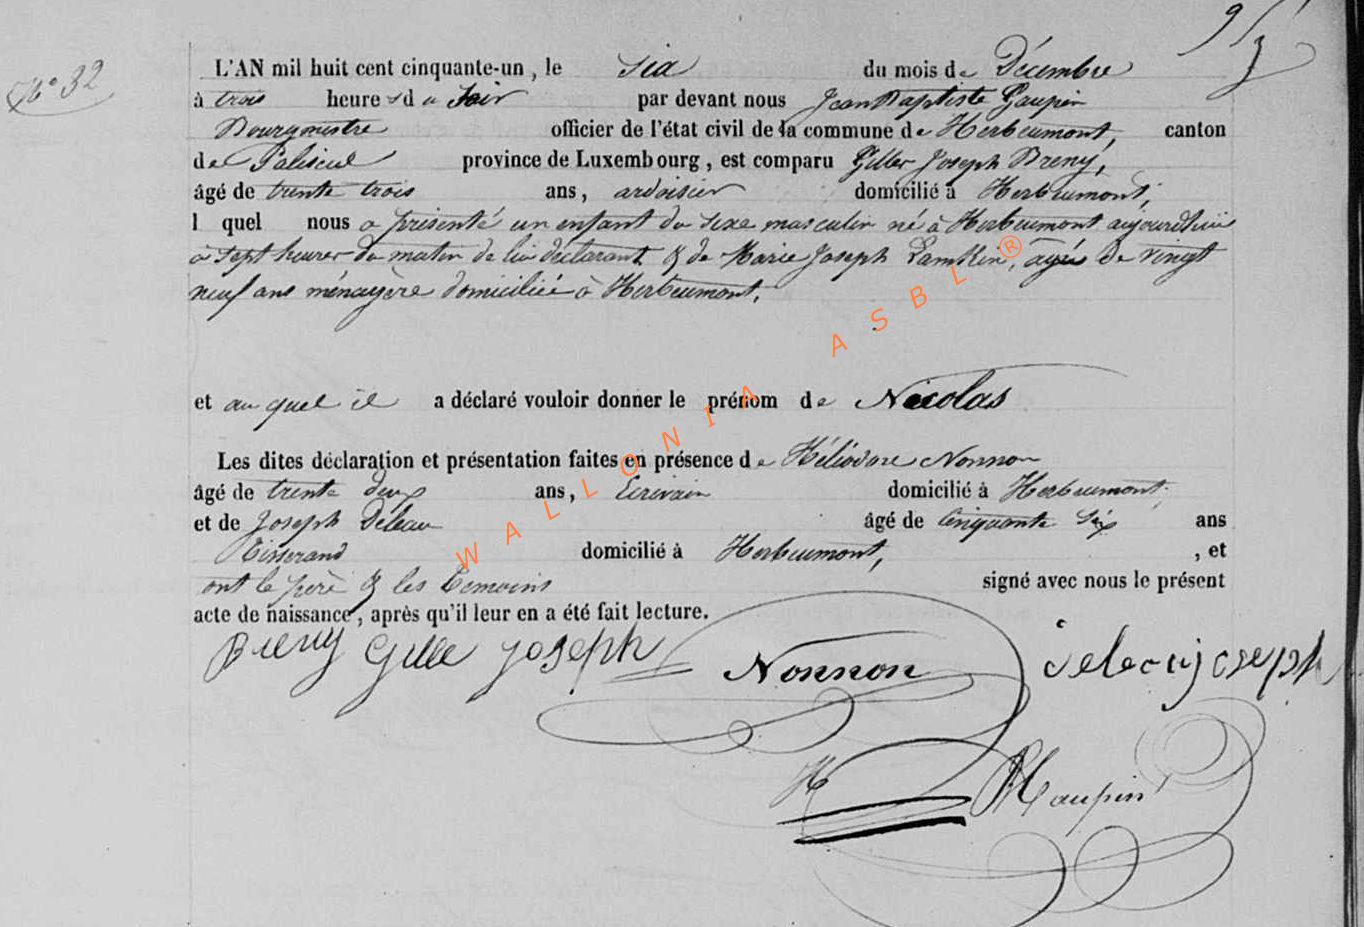 N° 32
L'AN mil huit cent cinquante-un, le six du mois de Décembre
à trois heures du soir par devant nous Jean Baptiste Gaupin
Bourgmestre officier de l'état civil de la commune de Herbeumont, canton
de Paliseul province de Luxembourg, est comparu Gilles Joseph Breny,
âgé de trente trois ans, ardoisier domicilié à Herbeumont,
l quel nous a présenté un enfant du sexe masculin né à Herbeumont aujourd'hui
à sept heures du matin de lui déclarant & de Marie Joseph Lambkin, âgés de vingt
neuf ans ménagère domiciliée à Herbeumont.
et au quel il a déclaré vouloir donner le prénom de Nicolas
Les dites déclaration et présentation faites en présence de Héliodore Nonnon
âgé de trente deux ans, Ecrivain domicilié à Herbeumont
et de Joseph Deleau âgé de cinquante six ans
Tisserand domicilié à Herbeumont, , et
ont le père & les témoins signé avec nous le présent
acte de naissance, après qu'il leur en a été fait lecture.
Breny Gille Joseph Nonnon joseph
H
WALLONIA ASBL ®